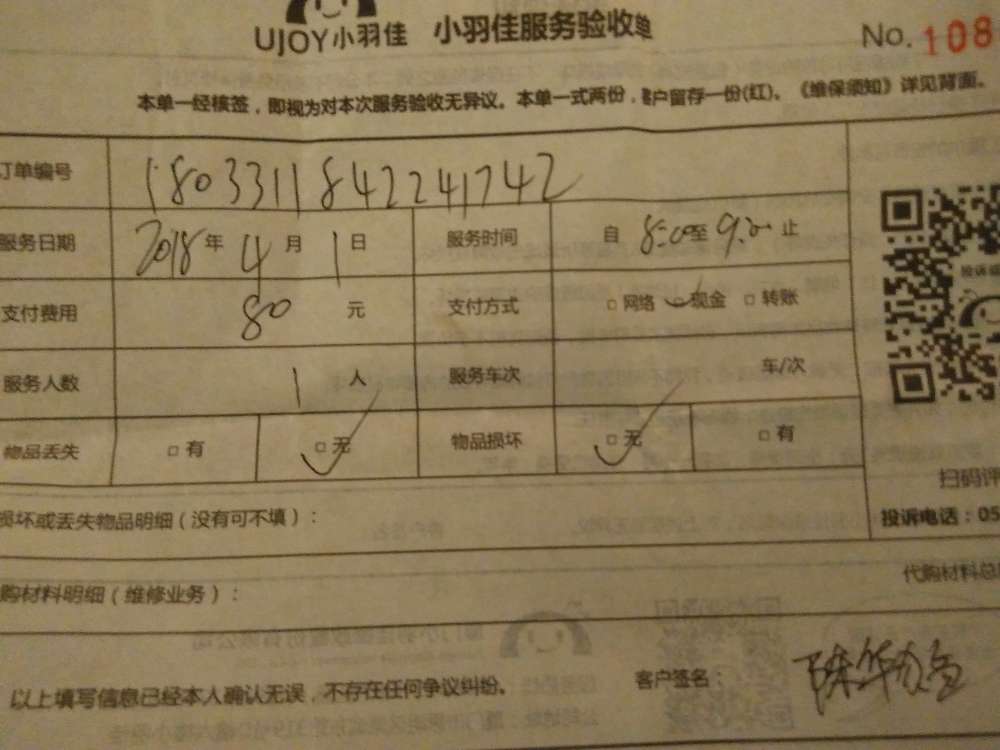 UJOY小羽佳 小羽佳服务验收单
No. 108
本单一经核签，即视为对本次服务验收无异议。本单一式两份，客户留存一份(红)。《维保须知》详见背面。
订单编号 1803311842241742
服务日期 2018年 4月 1日 服务时间 自 8:00至 9:30止
支付费用 80 元 支付方式 □网络 □现金 □转账
服务人数 1 人 服务车次 车/次
物品丢失 □有 □无 物品损坏 □无 □有
扫码评
损坏或丢失物品明细（没有可不填）：
投诉电话：05
购材料明细（维修业务）：
代购材料总
以上填写信息已经本人确认无误，不存在任何争议纠纷。 客户签名：